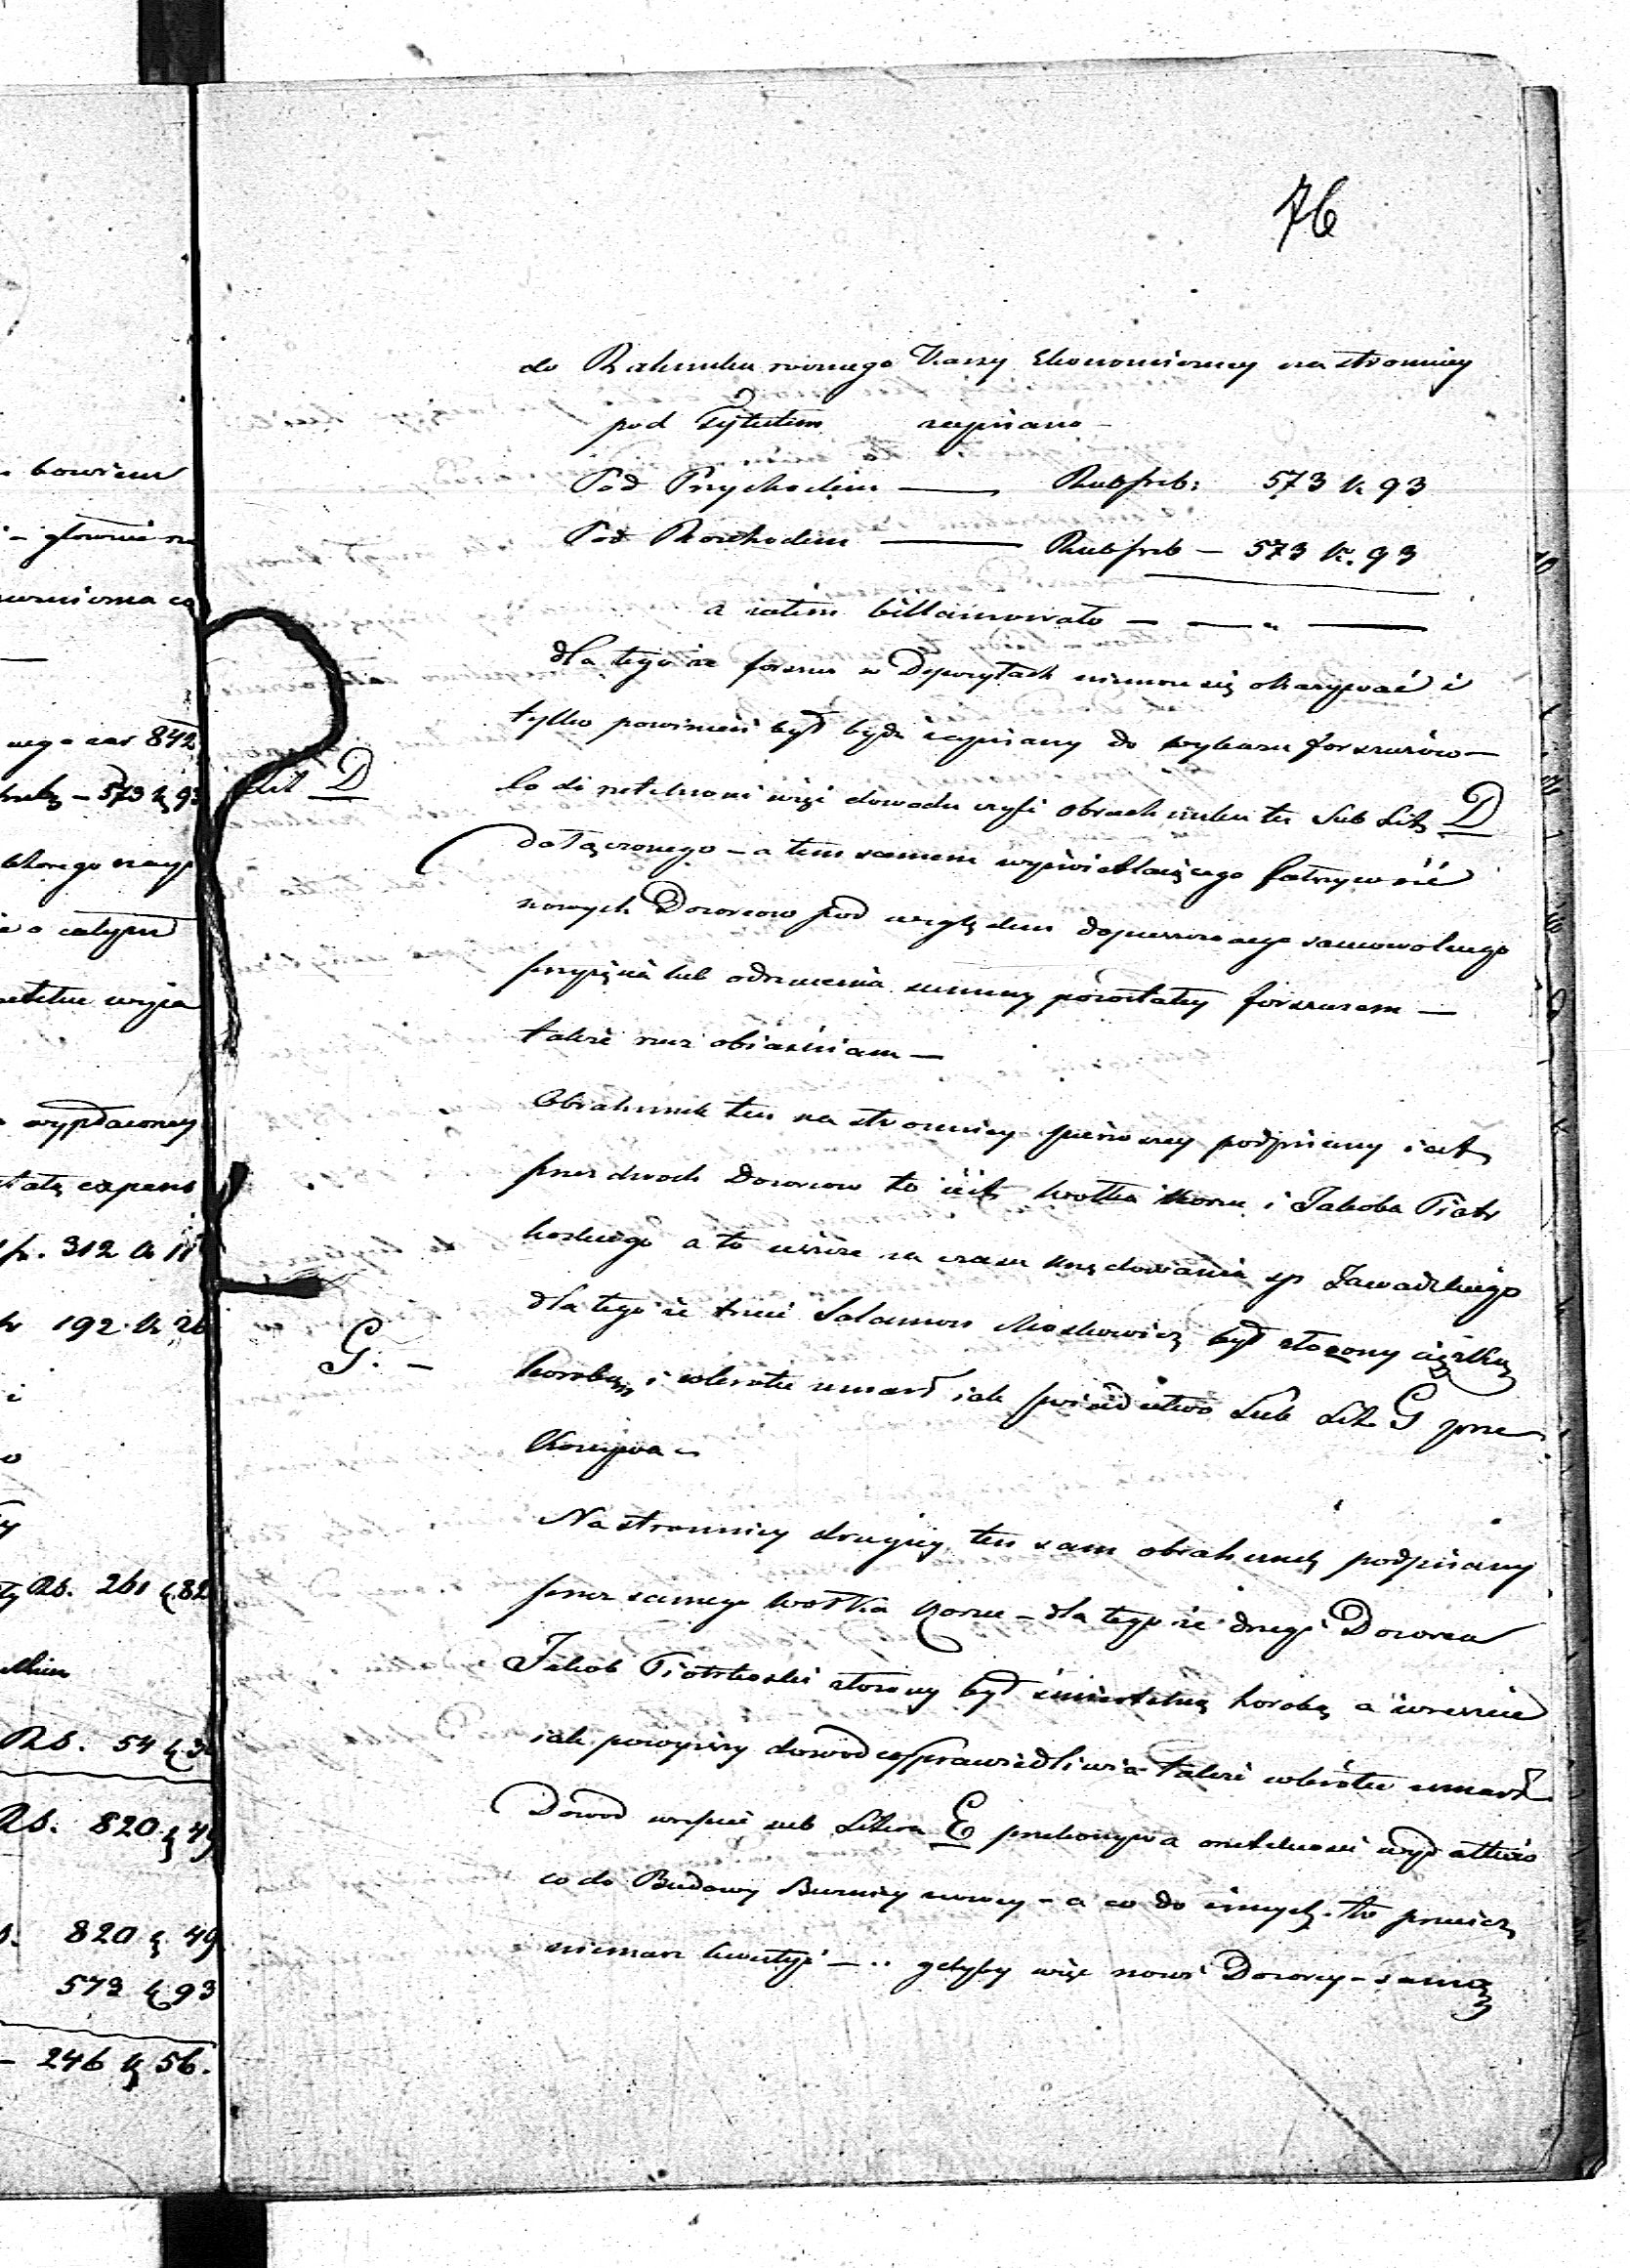 76
do Rahunku rocznego Kassy Ekonomiczney na stronnicy
pod Tytułem zapisano —
Pod Przychodem — Rub srb: 573 k 93
Pod Rozchodem — Rub srb — 573 k. 93
a zatim billansowało — — „ —
dla tego że forszus w Depozytach niemoże się okazywać i
tylko powinien był bydź zapisany do wykazu forszusów —
Lit D
Co do rzetelności więc dowodu czyli obrachunku tu Sub Lit D
dołączonego — a tem samem wyświetlaiącego fałszywość
nowych Dozorcow pod względem dopuszczonego samowolnego
przyięcia lub odrzucenia summy pozostałey forszusem —
także rzecz obiaśniam —
Obrahunek ten na stronnicy pierwszey podpisany iest
przez dwoch Dozorcow to iest Wolka Korn i Jakoba Piotr
koskiego a to ieszcze za czasu Urzędowania sp Zawadzkiego
dla tego że trzeci Salamon Moskowicz był złożony ciężką
G. —
horobą i wkrotce umarł iak swiadectwo Sub Lit G prze
konywa —
Na stronnicy drugiey ten sam obrahunek podpisany
przez samego Wolka Korn — dla tego że drugi Dozorca
Jakob Piotrkoski złożony był śmiertelną horobą a wreszcie
iak powyższy dowod usprawiedliwia także wkrótce umarł
Dowod wespół sub Litera E przekonywa o rzetelności wydatków
co do Budowy nowey — a co do innych to przecież
niemasz kwestyi — .. gdyby więc nowi Dozorcy — samą
bowiem
— głownie na
842
573 k 93
którego
o całym
wypłaconey
312 k 11
192 k 26
i
Rs. 261 k 82
Rs. 54 k
Rs. 820 k 49
820 k 49
573 k 93
— 246 k 56.